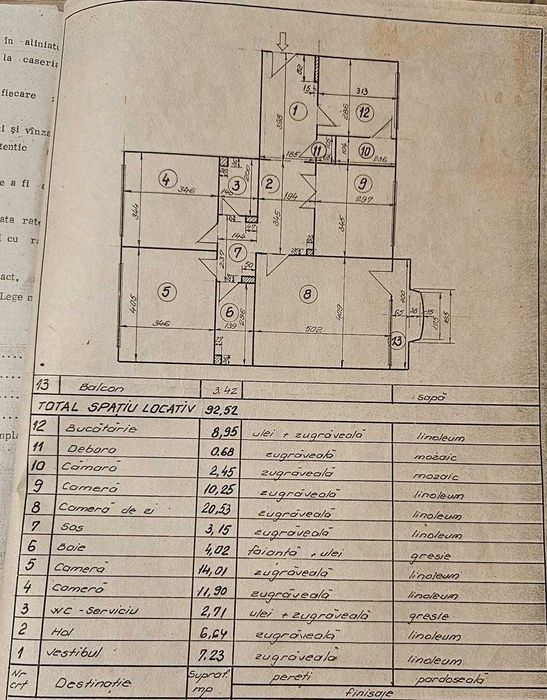 în aliniatu
la caseria
fiecare
i şi vînza
tentic
e a fi a
ata rate
i cu ra
act, a
Lege n
82
15
313
1
398
286
12
185
11
104
10
236
4
346
3
200
2
194
9
297
344
144
7
345
345
237
50
5
405
346
6
139
296
8
502
409
13
400
65
38
15
105
165
13 Balcon 3.42 sapă
TOTAL SPAŢIU LOCATIV 92,52
12 Bucătărie 8,95 ulei + zugrăveală linoleum
11 Debara 0.68 zugrăveală mozaic
10 Cămară 2,45 zugrăveală mozaic
9 Cameră 10,25 zugrăveală linoleum
8 Cameră de zi 20,53 zugrăveală linoleum
7 Sas 3,15 zugrăveală linoleum
6 Baie 4,02 faianţă + ulei gresie
5 Cameră 14,01 zugrăveală linoleum
4 Cameră 11,90 zugrăveală linoleum
3 WC - Serviciu 2,71 ulei + zugrăveală gresie
2 Hol 6,64 zugrăveală linoleum
1 Vestibul 7.23 zugrăveală linoleum
Nr crt Destinaţie Supraf. mp pereti pardoseală
finisaje